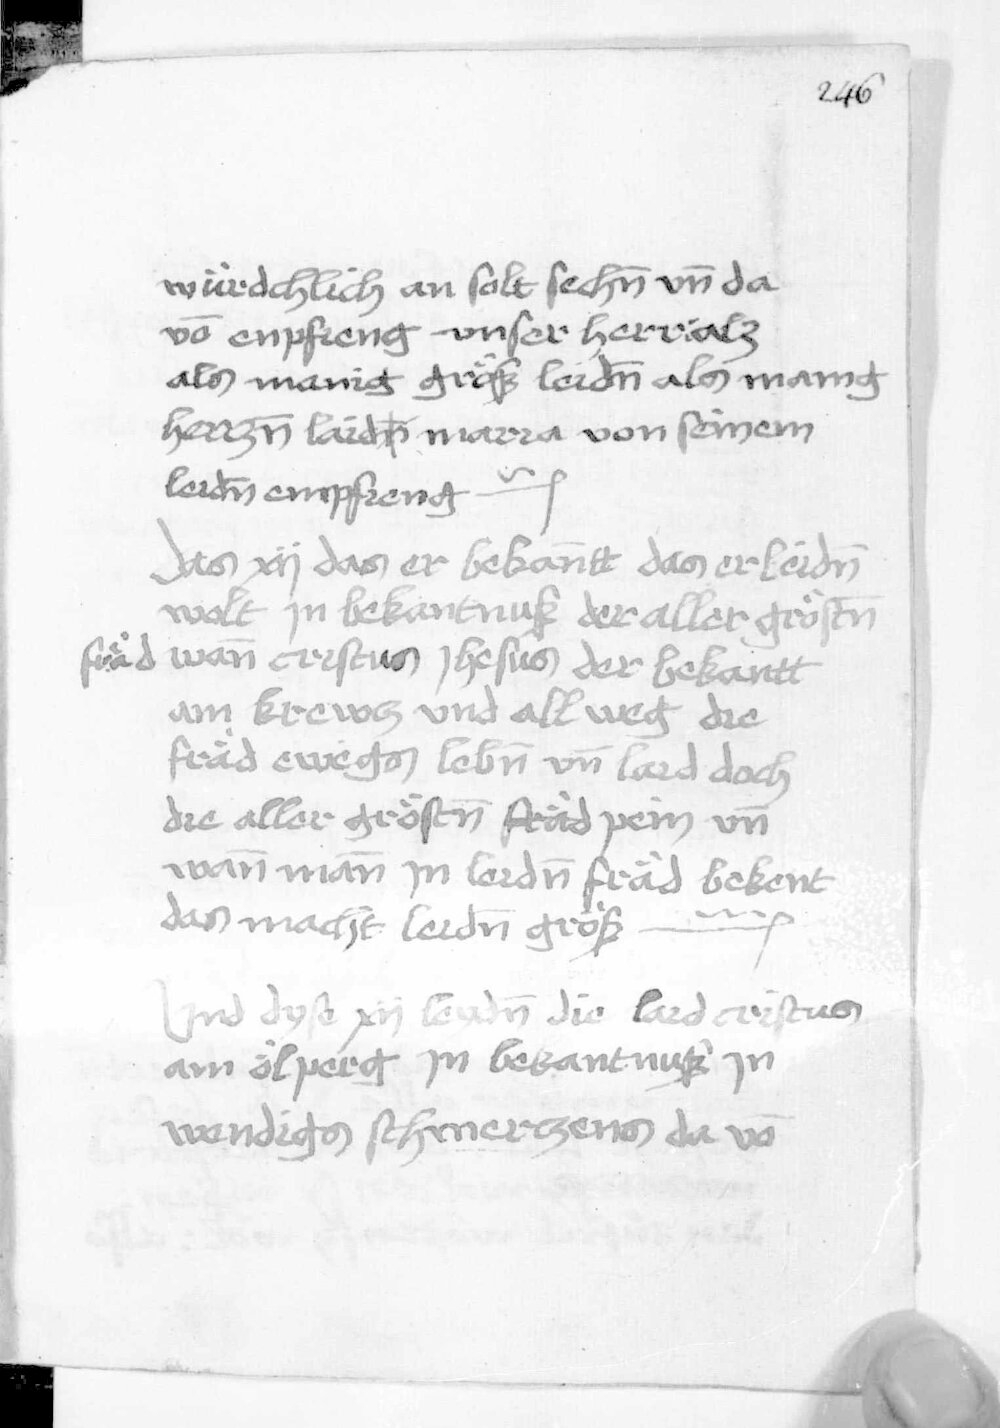 246
würdchlich an solt sechn̄ vn̄ da
vō enpfieng vnser herr alz
als manig größ leidn̄ als manig
herczn̄ laidn̄ maria von seinem
leidn̄ empfieng
Das xij das er bekan̄tt das er leidn̄
wolt jn bekantnuß der aller gröstn̄
fräd wan̄ cristus jhesus der bekantt
am krewcz vnd all weg die
fräd ewigs lebn̄ vn̄ laid doch
die aller gröstn̄ fräd pein vn̄
wan̄ man̄ jn leidn̄ fräd bekent
das macht leidn̄ größ
Vnd dyse xij leydn̄ die laid cristus
am ölperg jn bekantnuß jn
wendigs schmerczens da vō